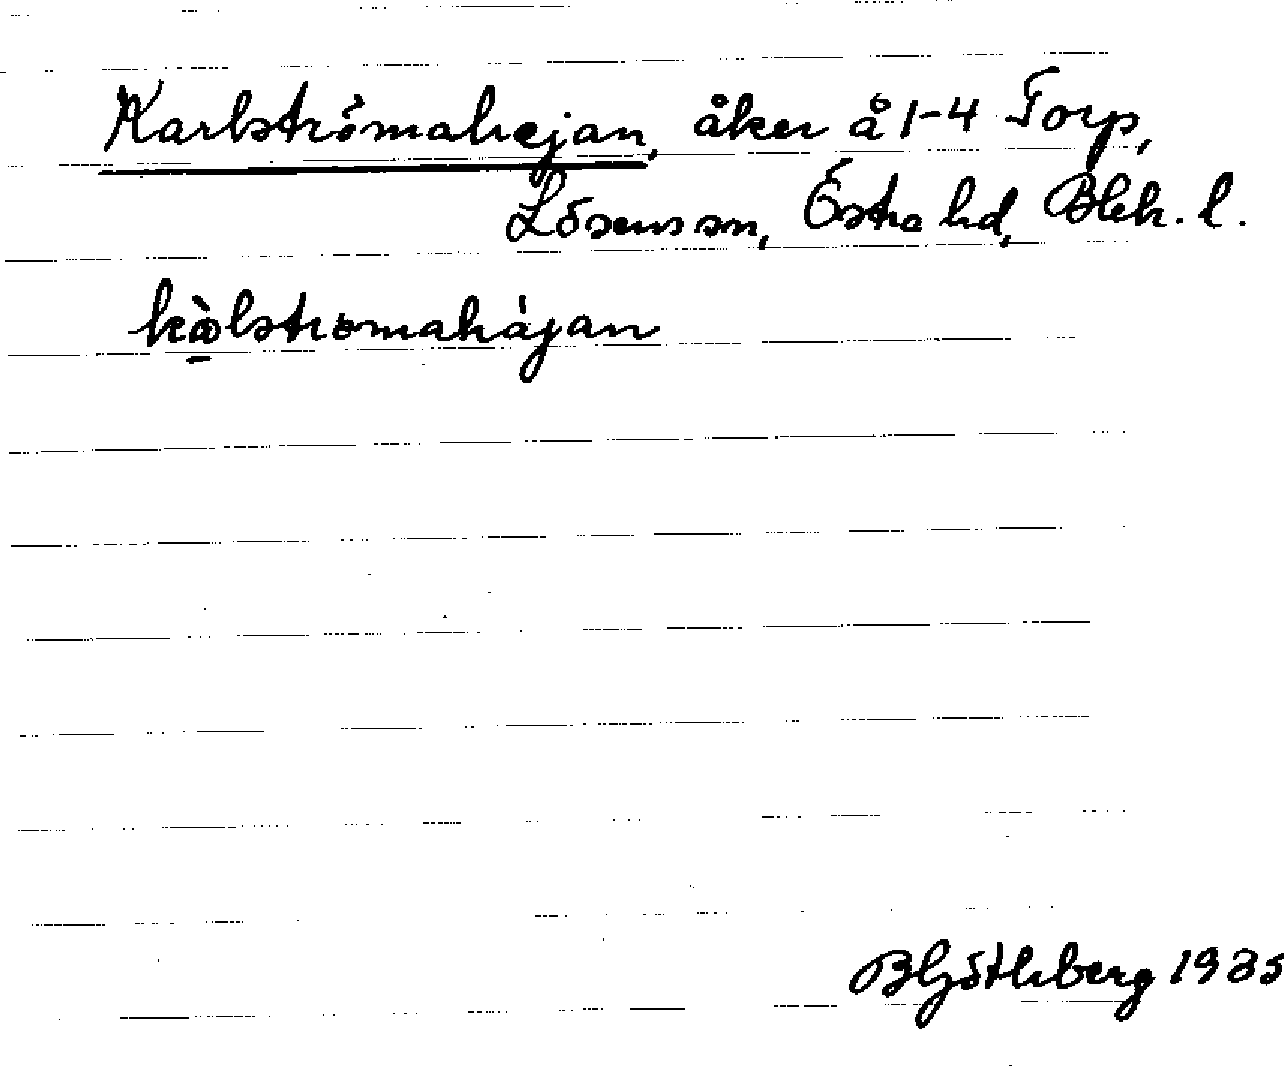 Karlströmahejan, åker å 1-4 Torp,
Lösens sn, Östra hd, Blek. l.
kàlstromahájan
B Göthberg 1935